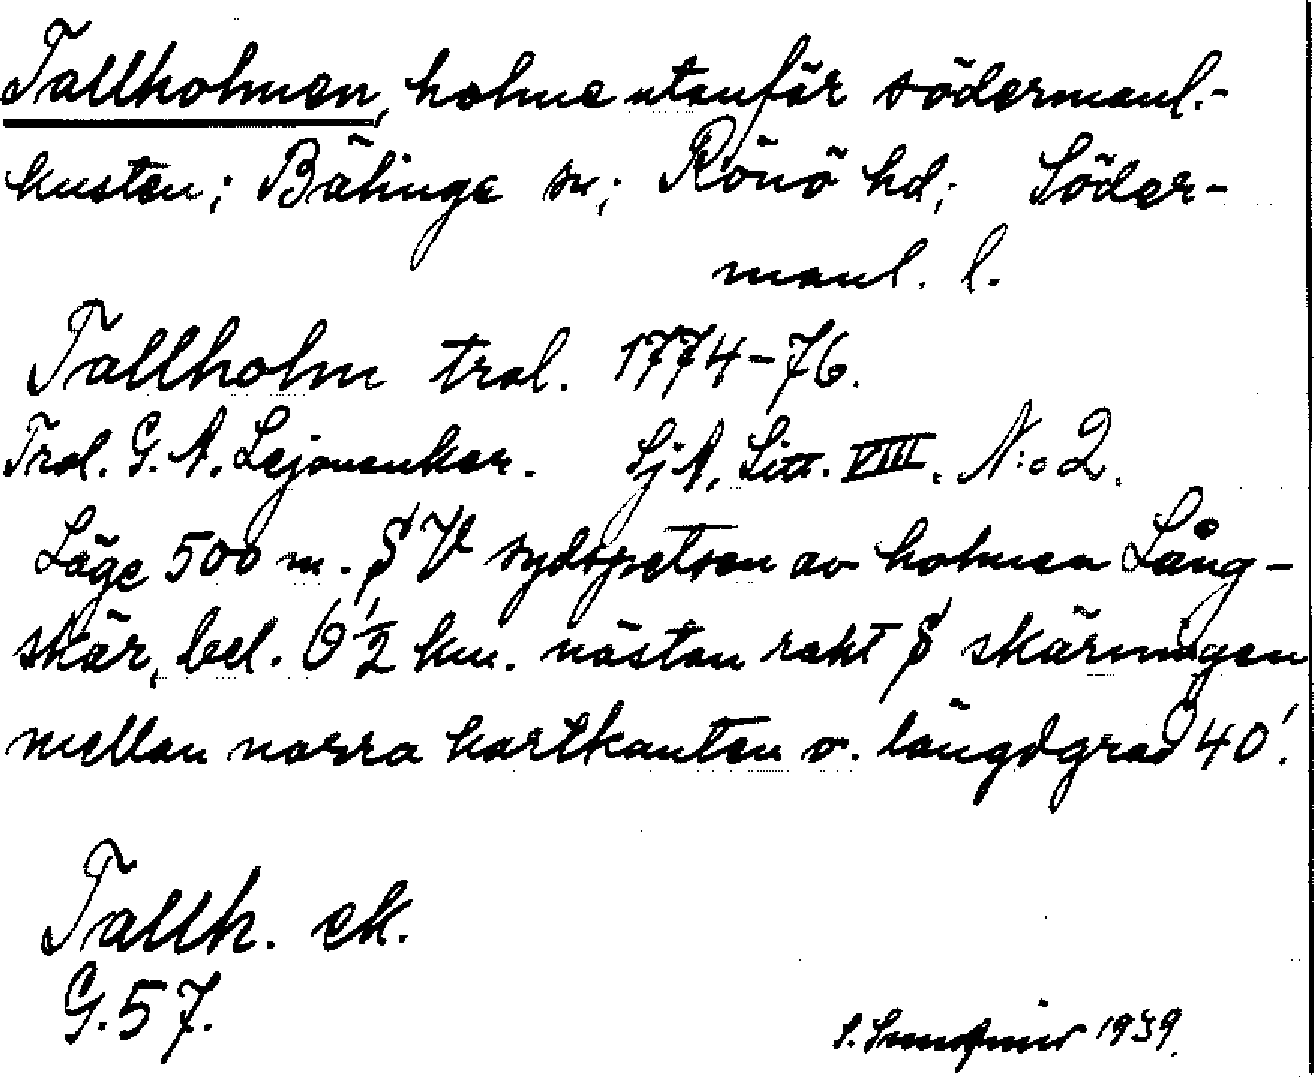 Tallholmen, holme utanför södermanl.-
kusten; Bälinge sn; Rönö hd; Söder-
manl. l.
Tallholm trol. 1774-76.
Trol. G. A. Lejonanker. SjA. Litt. VIII. N:o 2.
Läge 500 m. S V sydspetsen av holmen Lång-
skär, bel. 6 1/2 km. nästan rakt S skärningen
mellan norra kartkanten o. längdgrad 40'.
Tallh. ek.
G.57.
S. 1939.